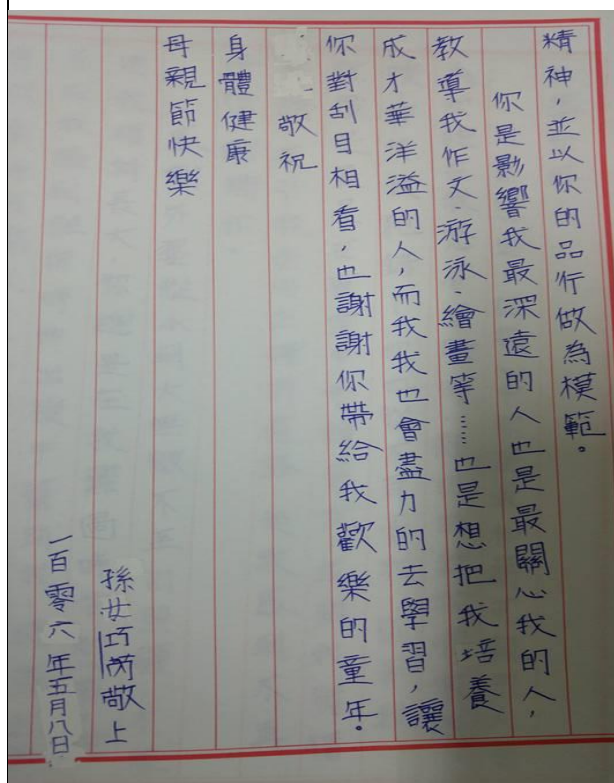 精神，並以你的品行做為模範。
你是影響我最深遠的人也是最關心我的人，
教導我作文、游泳、繪畫等……也是想把我培養
成才華洋溢的人，而我我也會盡力的去學習，讓
你對刮目相看，也謝謝你帶給我歡樂的童年。
敬祝
身體健康
母親節快樂
孫女巧芮敬上
一百零六年五月八日